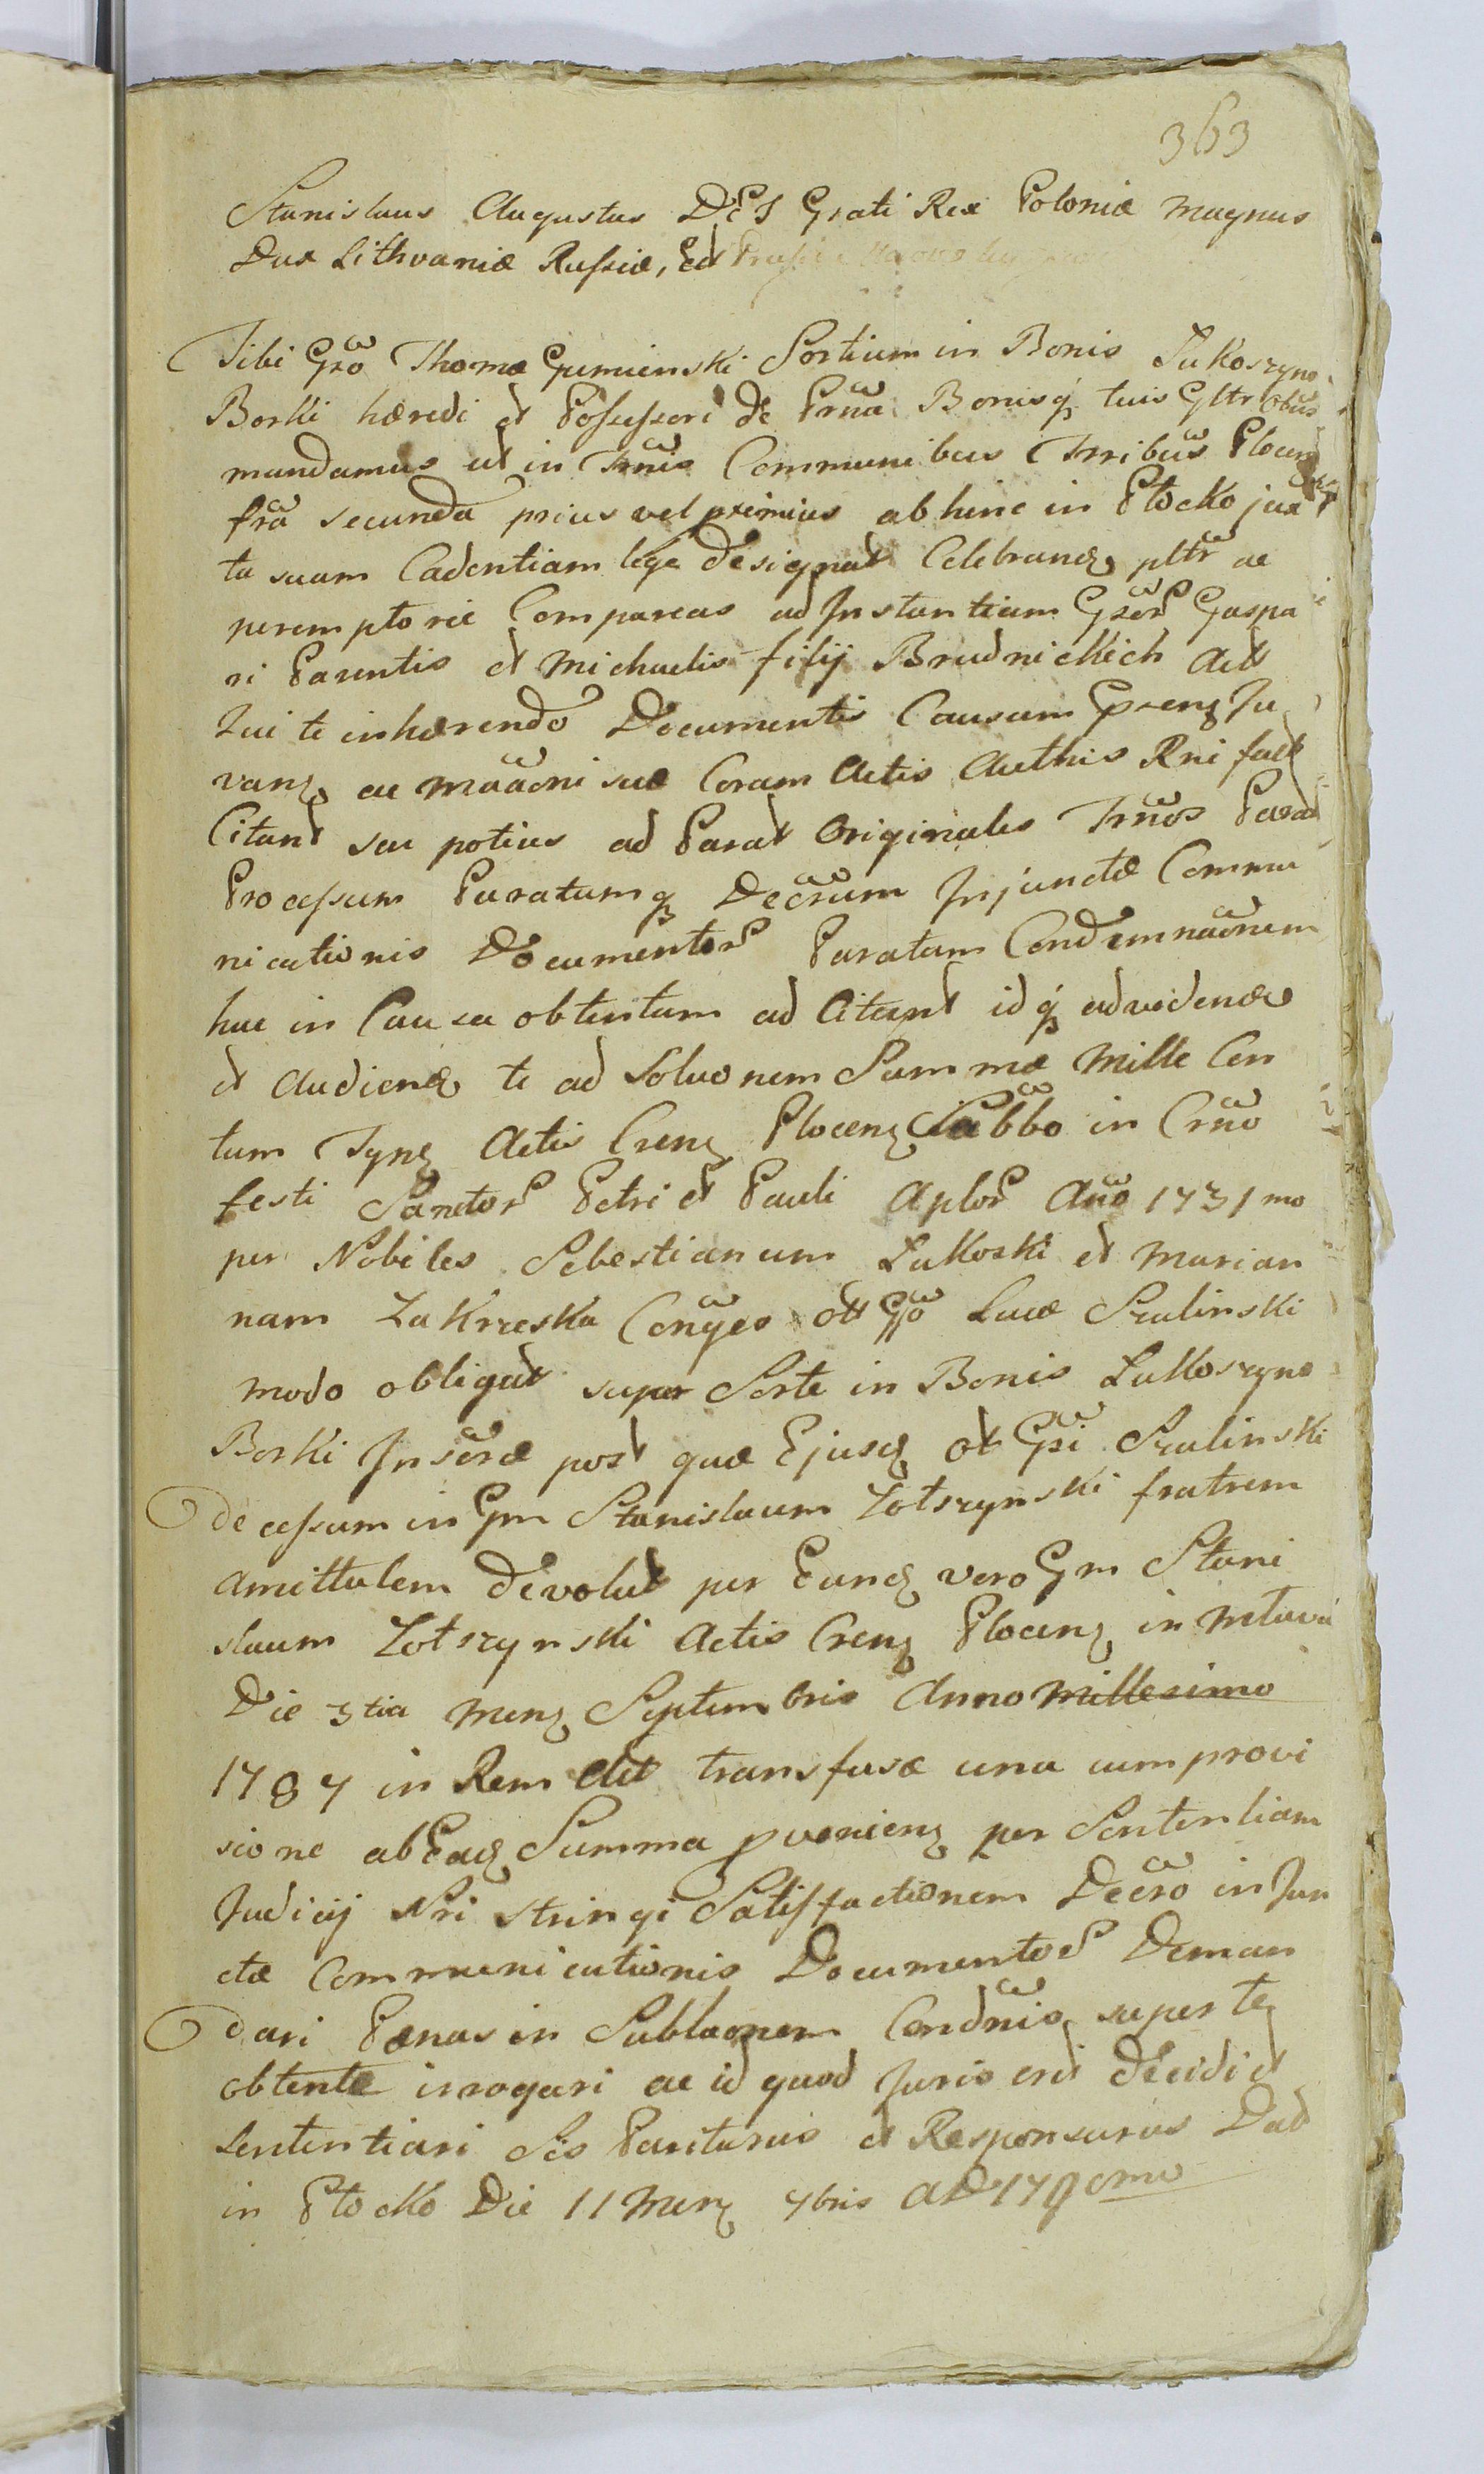 363
Stanislaus Augustus DEI Grati Rex Poloniæ Magnus
Dux Lithvaniæ Russiæ, Ed Prussiæ
Tibi Gro Thomæ Gumienski Sortium in Bonis Lukoszyno
Borki hæredi et Possessori de Prna Bonisq tuis Gltr obus
mandamus ut in Trnis Communibus Trribus Plocen
fra secunda prius vel proximius ab hinc in Płocko jux
ta suam Cadentiam lege designat Celebranđ pltr ac
peremptorie Compareas ad Instantiam Gror Gaspa
ri Parentis et Michaelis filij Brudnickich Act
Qui te inhærendo Documentis Causam Pręng Ju
vanđ ac Maaoni suæ Coram Actis Authis Rni fact
Citant seu potius ad Parat Originales Trnos Parat
Processum Paratumq Decrum Injunctæ Commu
nicationis Documentor Paratam Condemnaonem
hac in Causa obtentam ad Citant idq ad videnđ
et Audienđ te ad Soluonem Summæ Mille Cen
tum Tynf Actis Crenz Plocenz Sabbo in Crno
festi Sanctor Petri et Pauli Aplor Ano 1731mo
per Nobiles Sebestianum Lukoski et Marian
nam Zakrzeska Conges ott Gso Lucæ Szulinski
modo obligat super Sorte in Bonis Lukoszyno
Borki Inscræ post quæ Ejusđ ot Gsi Szulinski
decessum in Gm Stanislaum Zołszynski fratrem
amittalem devolut per Eunđ vero Gm Stani
slaum Zołszynski Actis Crenz Plocenz in Mława
Die 3tia Menz Septembris Anno Millesimo
1787 in Rem Act transfusæ una cum provi
sione ab Eađ Summa pvenienz per Sententiam
Judicij Nri stringi Satisfactionem Decro injun
ctæ Communicationis Documentor Deman
dari Pænas in Sublaonem Condnis super te
obtentæ irrogari ac id quod Juris erit decidi et
Sententiari Sis Pariturus et Responsurus Dat
in Płocko Die 11 Menz 7bris AD 1790mo